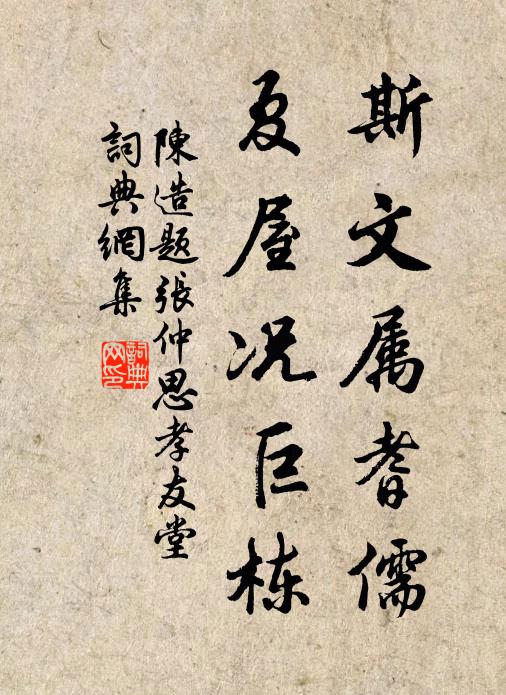 斯文属耆儒
夏屋况巨栋
陳造題張仲思孝友堂
詞典網集
詞典网印